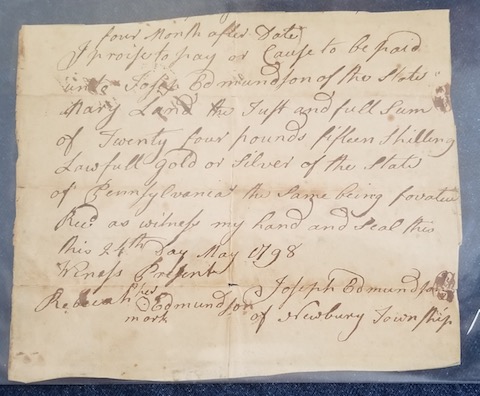 four Month after Date
I proise to pay or Cause to be paid
unto Joseph Edmundson of the State
Mary Land the Just and full Sum
of Twenty four pounds fifteen Shilling
Lawfull Gold or Silver of the State
of Pennsylvania the same being for
Recd as witness my hand and seal this
this 24th day May 1798
Witness Present
Joseph Edmundson
Rebecah her Edmundson
mark
of Newbury Township